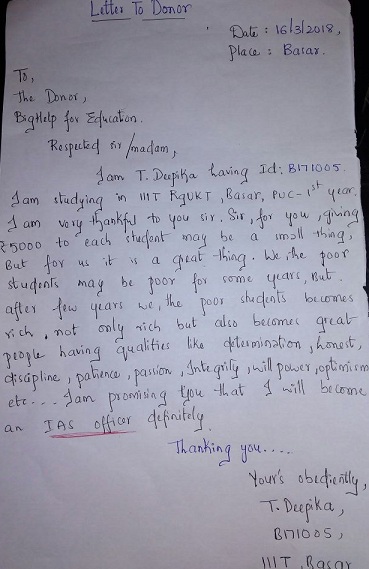 Letter To Donor
Date : 16/3/2018,
Place : Basar.
To,
The Donor,
BigHelp for Education.
Respected sir/madam,
I am T. Deepika having Id: B171005.
I am studying in IIIT RGUKT, Basar, PUC-1st year.
I am very thankful to you sir. Sir, for you, giving
₹5000 to each student may be a small thing,
But for us it is a great thing. We, the poor
students may be poor for some years, But.
after few years we, the poor students becomes
rich, not only rich but also becomes great
people having qualities like determination, honest,
discipline, patience, passion, Integrity, will power, optimism
etc... I am promising you that I will become
an IAS officer definitely.
Thanking you....
Your's obediently,
T. Deepika,
B171005,
IIIT, Basar